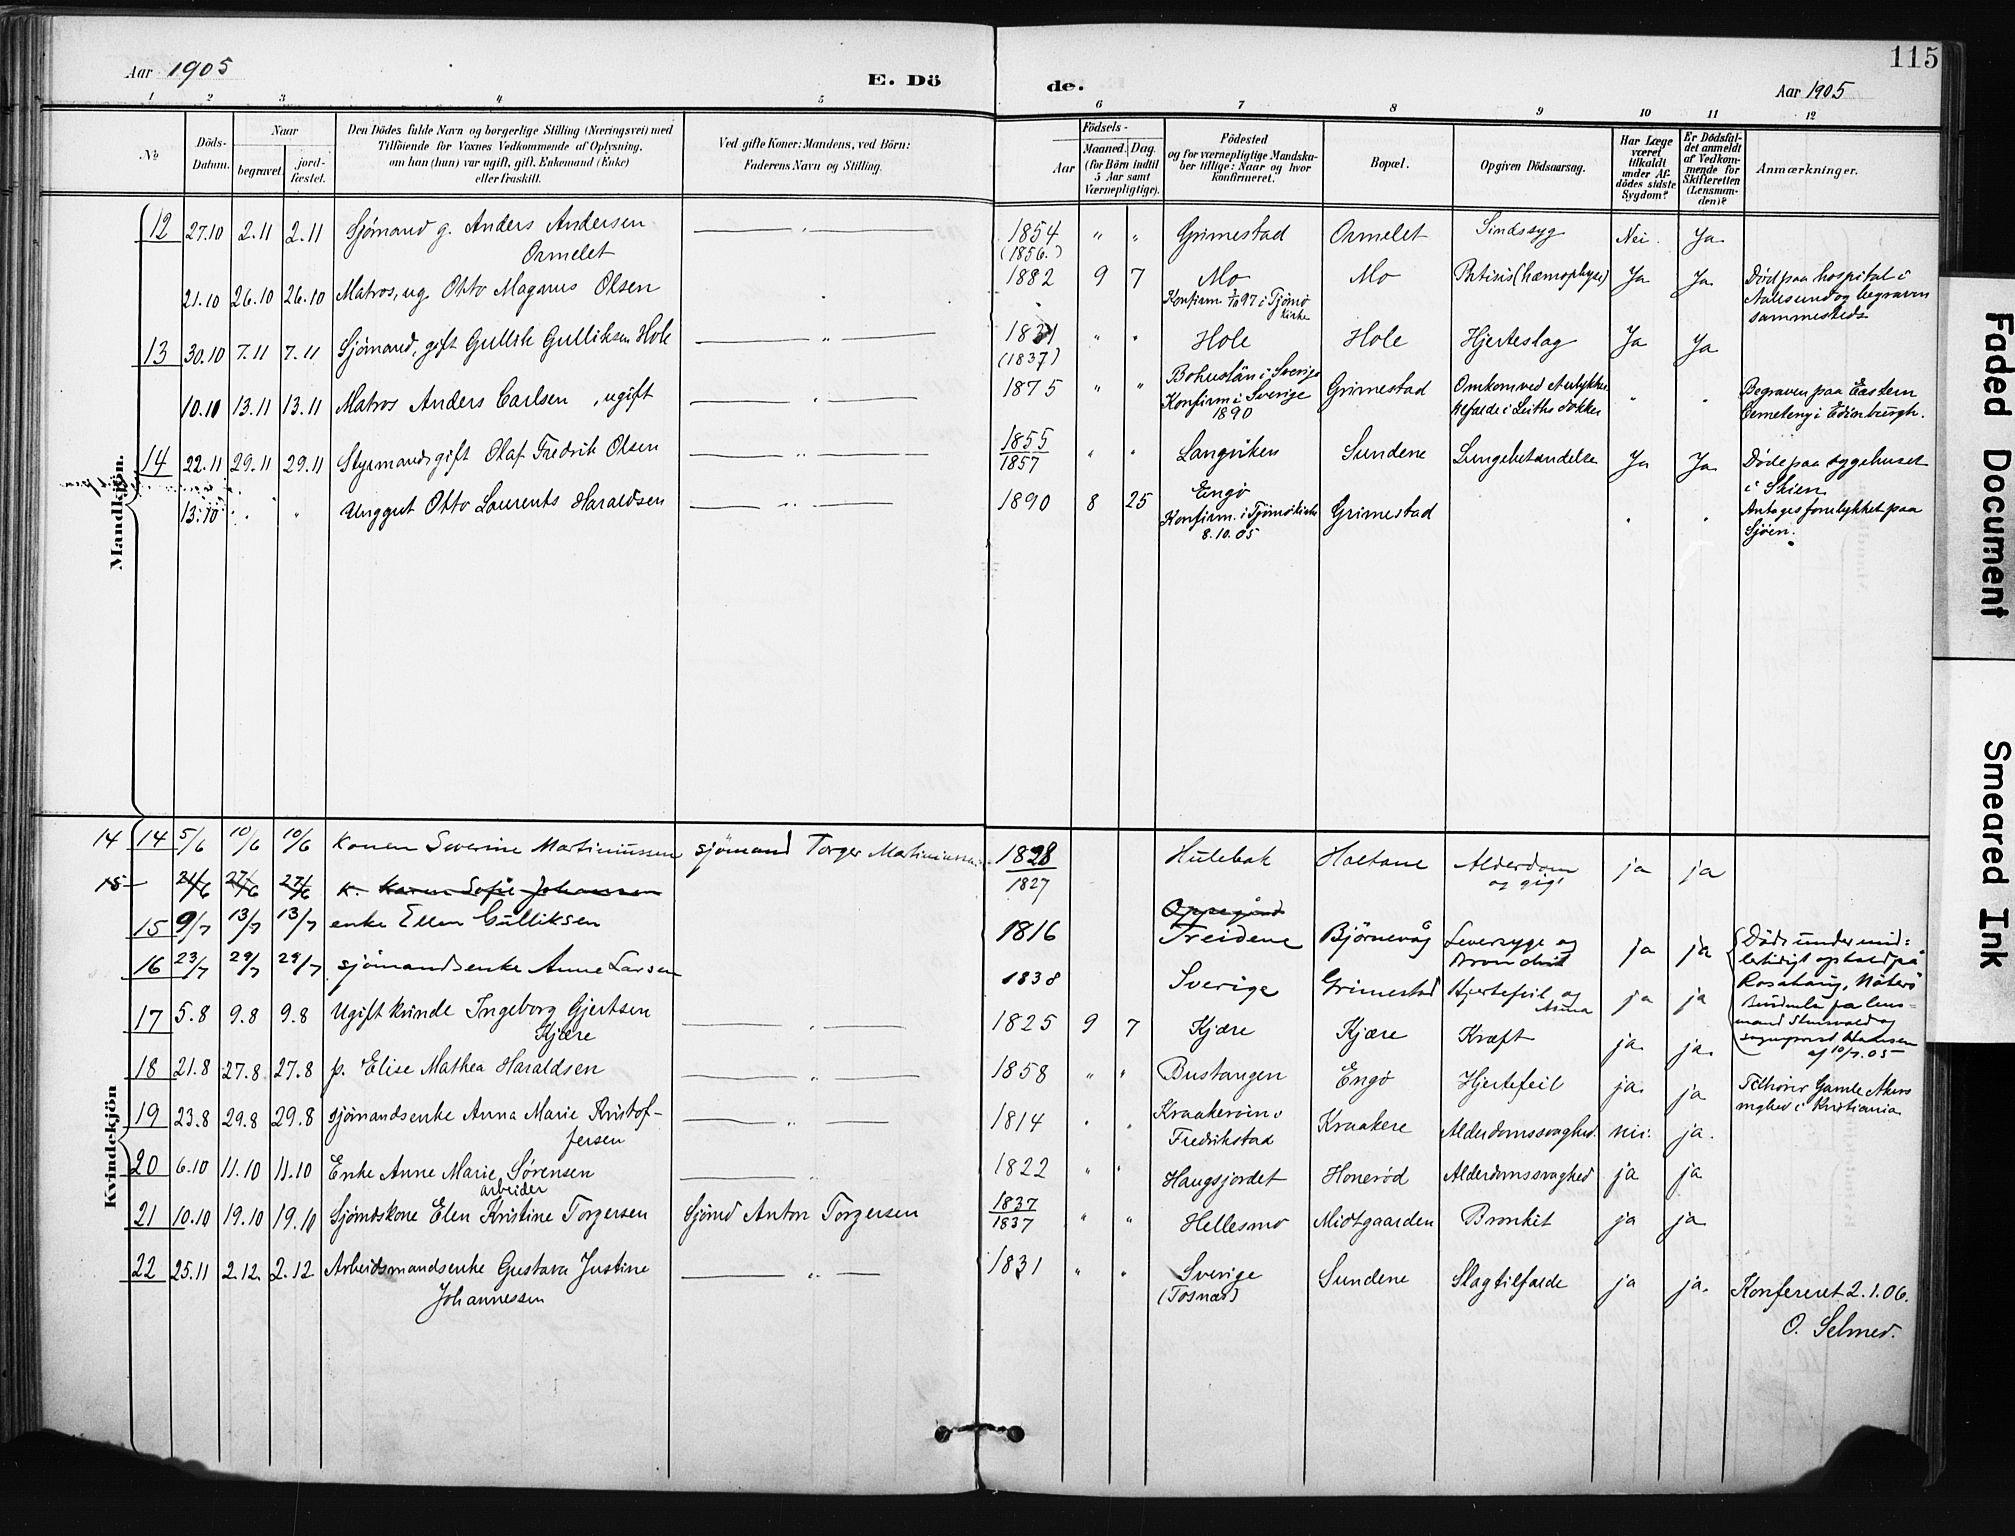 115
Aar 1905
E. Dö
de.
Aar 1905
1 2 3 4 5 6 7 8 9 10 11 12
No
Döds-
Datum.
Naar
begravet.
jord-
fæstet.
Den Dödes fulde Navn og borgerlige Stilling (Næringsvei) med
Tilföiende for Voxnes Vedkommende af Oplysning,
om han (hun) var ugift, gift, Enkemand (Enke)
eller fraskilt.
Ved gifte Koner: Mandens, ved Börn:
Faderens Navn og Stilling.
Födsels-
Aar
Maaned.
Dag.
(for Börn indtil
5 Aar samt
Værnepligtige).
Födested
og for værnepligtige Mandska-
ber tillige: Naar og hvor
konfirmeret.
Bopæl.
Opgiven Dödsaarsag.
Har Læge
været
tilkaldt
under Af-
dödes sidste
Sygdom?
Er Dødsfal-
det anmeldt
af Vedkom-
mende for
Skifteretten
(Lensman-
den)?
Anmærkninger.
Mandkjön.
12 27.10 2.11 2.11 Sjömand g. Anders Andersen — " — 1854 " " Grimestad Ormelet Sindssyg Nei. Ja
Ormelet (1856.)
21.10 26.10 26.10 Matros, ug. Otto Magnus Olsen 1882 9 7 Mo Mo Ja Ja Død paa hospital i
Konfirm 97 i Tjömö Aalesund og begraven
kirke sammesteds
13 30.10 7.11 7.11 Sjömand, gift Gullik Gulliksen Hole — " — 1831 " " Hole Hole Hjerteslag Ja Ja
(1837)
10.10 13.11 13.11 Matros Anders Carlsen, ugift — " — 1875 " " Bohuslän i Sverige Grimestad Omkom ved et ulykkes " " Begraven paa Eastern
Konfirm i Sverige tilfælde i Leiths dokker Cemetery i Edinburgh.
1890
14 22.11 29.11 29.11 Styrmand gift Olaf Fredrik Olsen — " — 1855 " " Langviken Sundene Lungebetændelse Ja Ja Døde paa sygehuset
1857 i Skien
13.10 " " Unggut Otto Laurents Haraldsen — " — 1890 8 25 Engö Grimestad " " Antages forulykket paa
Konfirm. i Tjömö kirke Sjöen.
8.10.05
Kvindekjön
14 14 5/6 10/6 10/6 Konen Severine Martiniussen sjömand Torger Martiniussen 1828 Hulebak Haltane Alderdom ja ja
1827 og gigt
15 24/6 27/6 27/6 K. Karen Sofie Johansen
15 9/7 13/7 13/7 enke Ellen Gulliksen 1816 Treidene Björnevåg Leversyge og ja ja Död under mid-
lertidigt ophold på
16 23/7 29/7 29/7 sjömandsenke Anne Larsen 1838 Sverige Grimestad Hjertefeil og ja ja
Asma
17 5.8 9.8 9.8 Ugift kvinde Ingeborg Gjertsen — " — 1825 9 7 Kjære Kjære Kræft ja. ja.
Kjære af 10/7.05
18 21.8 27.8 27.8 p. Elise Mathea Haraldsen — " — 1858 " " Bustangen Engö Hjertefeil ja. ja Tilhörer Gamle Akers
menighed i Kristiania
19 23.8 29.8 29.8 sjömandsenke Anna Marie Kristof- — " — 1814 " " Kraakeröen i Kraakere Alderdomssvaghed. nei. ja.
fersen Fredrikstad
20 6.10 11.10 11.10 Enke Anne Marie Sörensen — " 1822 " " Haugsjordet Honeröd Alderdomssvaghed ja ja
arbeider
21 10.10 19.10 19.10 Sjömdskone Elen Kristine Torgersen Sjömd Anton Torgersen 1837 " " Hellesmo Midtgaarden Bronkit ja ja
1837
22 25.11 2.12. 2.12 Arbeidsmandsenke Gustava Justine — " — 1831 " " Sverige Sundene Slagtilfælde ja ja.
Johannessen Konfereret 2.1.06.
O. Selmer.
Faded Document
Smeared Ink